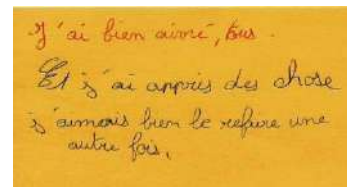 J'ai bien aimé, tous.
Et j'ai appris des chose
j'aimerais bien le refaire une
autre fois.